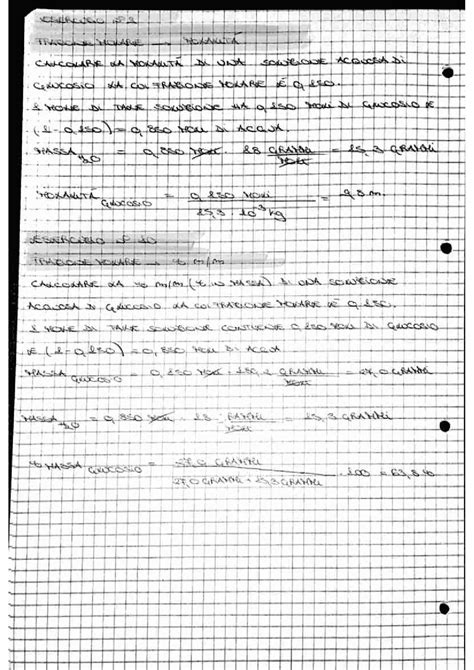 ESERCIZIO N° 9
FRAZIONE MOLARE → MOLALITÀ
CALCOLARE LA MOLALITÀ DI UNA SOLUZIONE ACQUOSA DI
GLUCOSIO LA CUI FRAZIONE MOLARE È 0,150.
1 MOLE DI TALE SOLUZIONE HA 0,150 MOLI DI GLUCOSIO E
(1-0,150) = 0,850 MOLI DI ACQUA.
MASSA H2O = 0,850 MOLI · 18 GRAMMI/MOLI = 15,3 GRAMMI
MOLALITÀ GLUCOSIO = 0,150 MOLI / 15,3 · 10⁻³ kg = 9,8 m.
ESERCIZIO N° 10
FRAZIONE MOLARE → % m/m
CALCOLARE LA % m/m (% IN MASSA) DI UNA SOLUZIONE
ACQUOSA DI GLUCOSIO LA CUI FRAZIONE MOLARE È 0,150.
1 MOLE DI TALE SOLUZIONE CONTIENE 0,150 MOLI DI GLUCOSIO
E (1-0,150) = 0,850 MOLI DI ACQUA
MASSA GLUCOSIO = 0,150 MOLI · 180,2 GRAMMI/MOLI = 27,0 GRAMMI
MASSA H2O = 0,850 MOLI · 18 GRAMMI/MOLI = 15,3 GRAMMI
% MASSA GLUCOSIO = 27,0 GRAMMI / 27,0 GRAMMI + 15,3 GRAMMI · 100 = 63,8 %